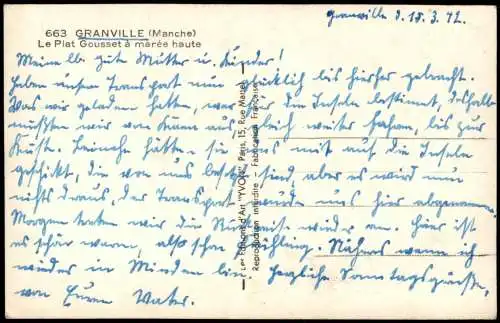 663 GRANVILLE (Manche)
Le Plat Gousset à marée haute
Granville d. 18.3.42.
Meine lb. gute Mutter u. Kinder!
Haben unsern Transport nun glücklich bis hierher gebracht.
Was wir geladen hatten, war für die Inseln bestimmt, deshalb
mußten wir von Caen aus gleich weiter fahren, bis zur
Küste. Beinahe hätten sie uns mit auf die Inseln
geschickt, die von uns besetzt sind, aber es wird nun
nichts daraus, der Transport wurde uns hier abgenommen.
Morgen treten wir die Rückreise wieder an. Hier ist
es schön warm, also schon Frühling. Näheres wenn ich
wieder in Minden bin. Herzliche Sonntagsgrüße,
von Eurem Vater.
Les Editions d'Art "YVON", Paris, 15, Rue Martel
Reproduction interdite - Fabrication Française